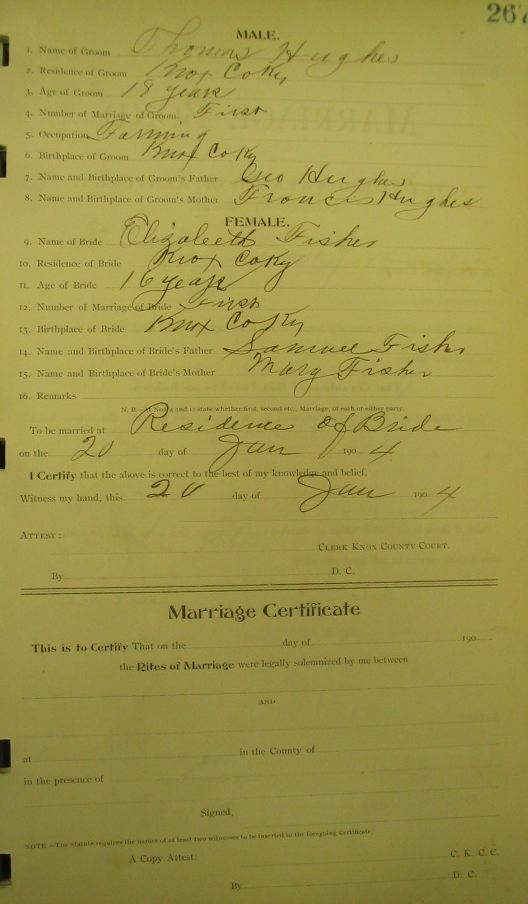 267
MALE.
1. Name of Groom Thomas Hughes
2. Residence of Groom Knox Co Ky
3. Age of Groom 18 years
4. Number of Marriage of Groom First
5. Occupation Farming
6. Birthplace of Groom Knox Co Ky
7. Name and Birthplace of Groom's Father Geo Hughes
8. Name and Birthplace of Groom's Mother Francis Hughes
FEMALE.
9. Name of Bride Elizabeth Fisher
10. Residence of Bride Knox Co Ky
11. Age of Bride 16 years
12. Number of Marriage of Bride First
13. Birthplace of Bride Knox Co Ky
14. Name and Birthplace of Bride's Father Samuel Fisher
15. Name and Birthplace of Bride's Mother Mary Fisher
16. Remarks
N. B.—At Nos. 4 and 12 state whether first, second etc., Marriage, of each or either party.
To be married at Residence of Bride
on the 20 day of Jan 1904
I Certify that the above is correct to the best of my knowledge and belief.
Witness my hand, this 20 day of Jan 1904
ATTEST:
CLERK KNOX COUNTY COURT.
By D. C.
Marriage Certificate
This is to Certify That on the day of 190
the Rites of Marriage were legally solemnized by me between
AND
at in the County of
in the presence of
Signed,
NOTE—The Statute requires the names of at least two witnesses to be inserted in the foregoing Certificate.
A Copy Attest: C. K. C. C.
By D. C.